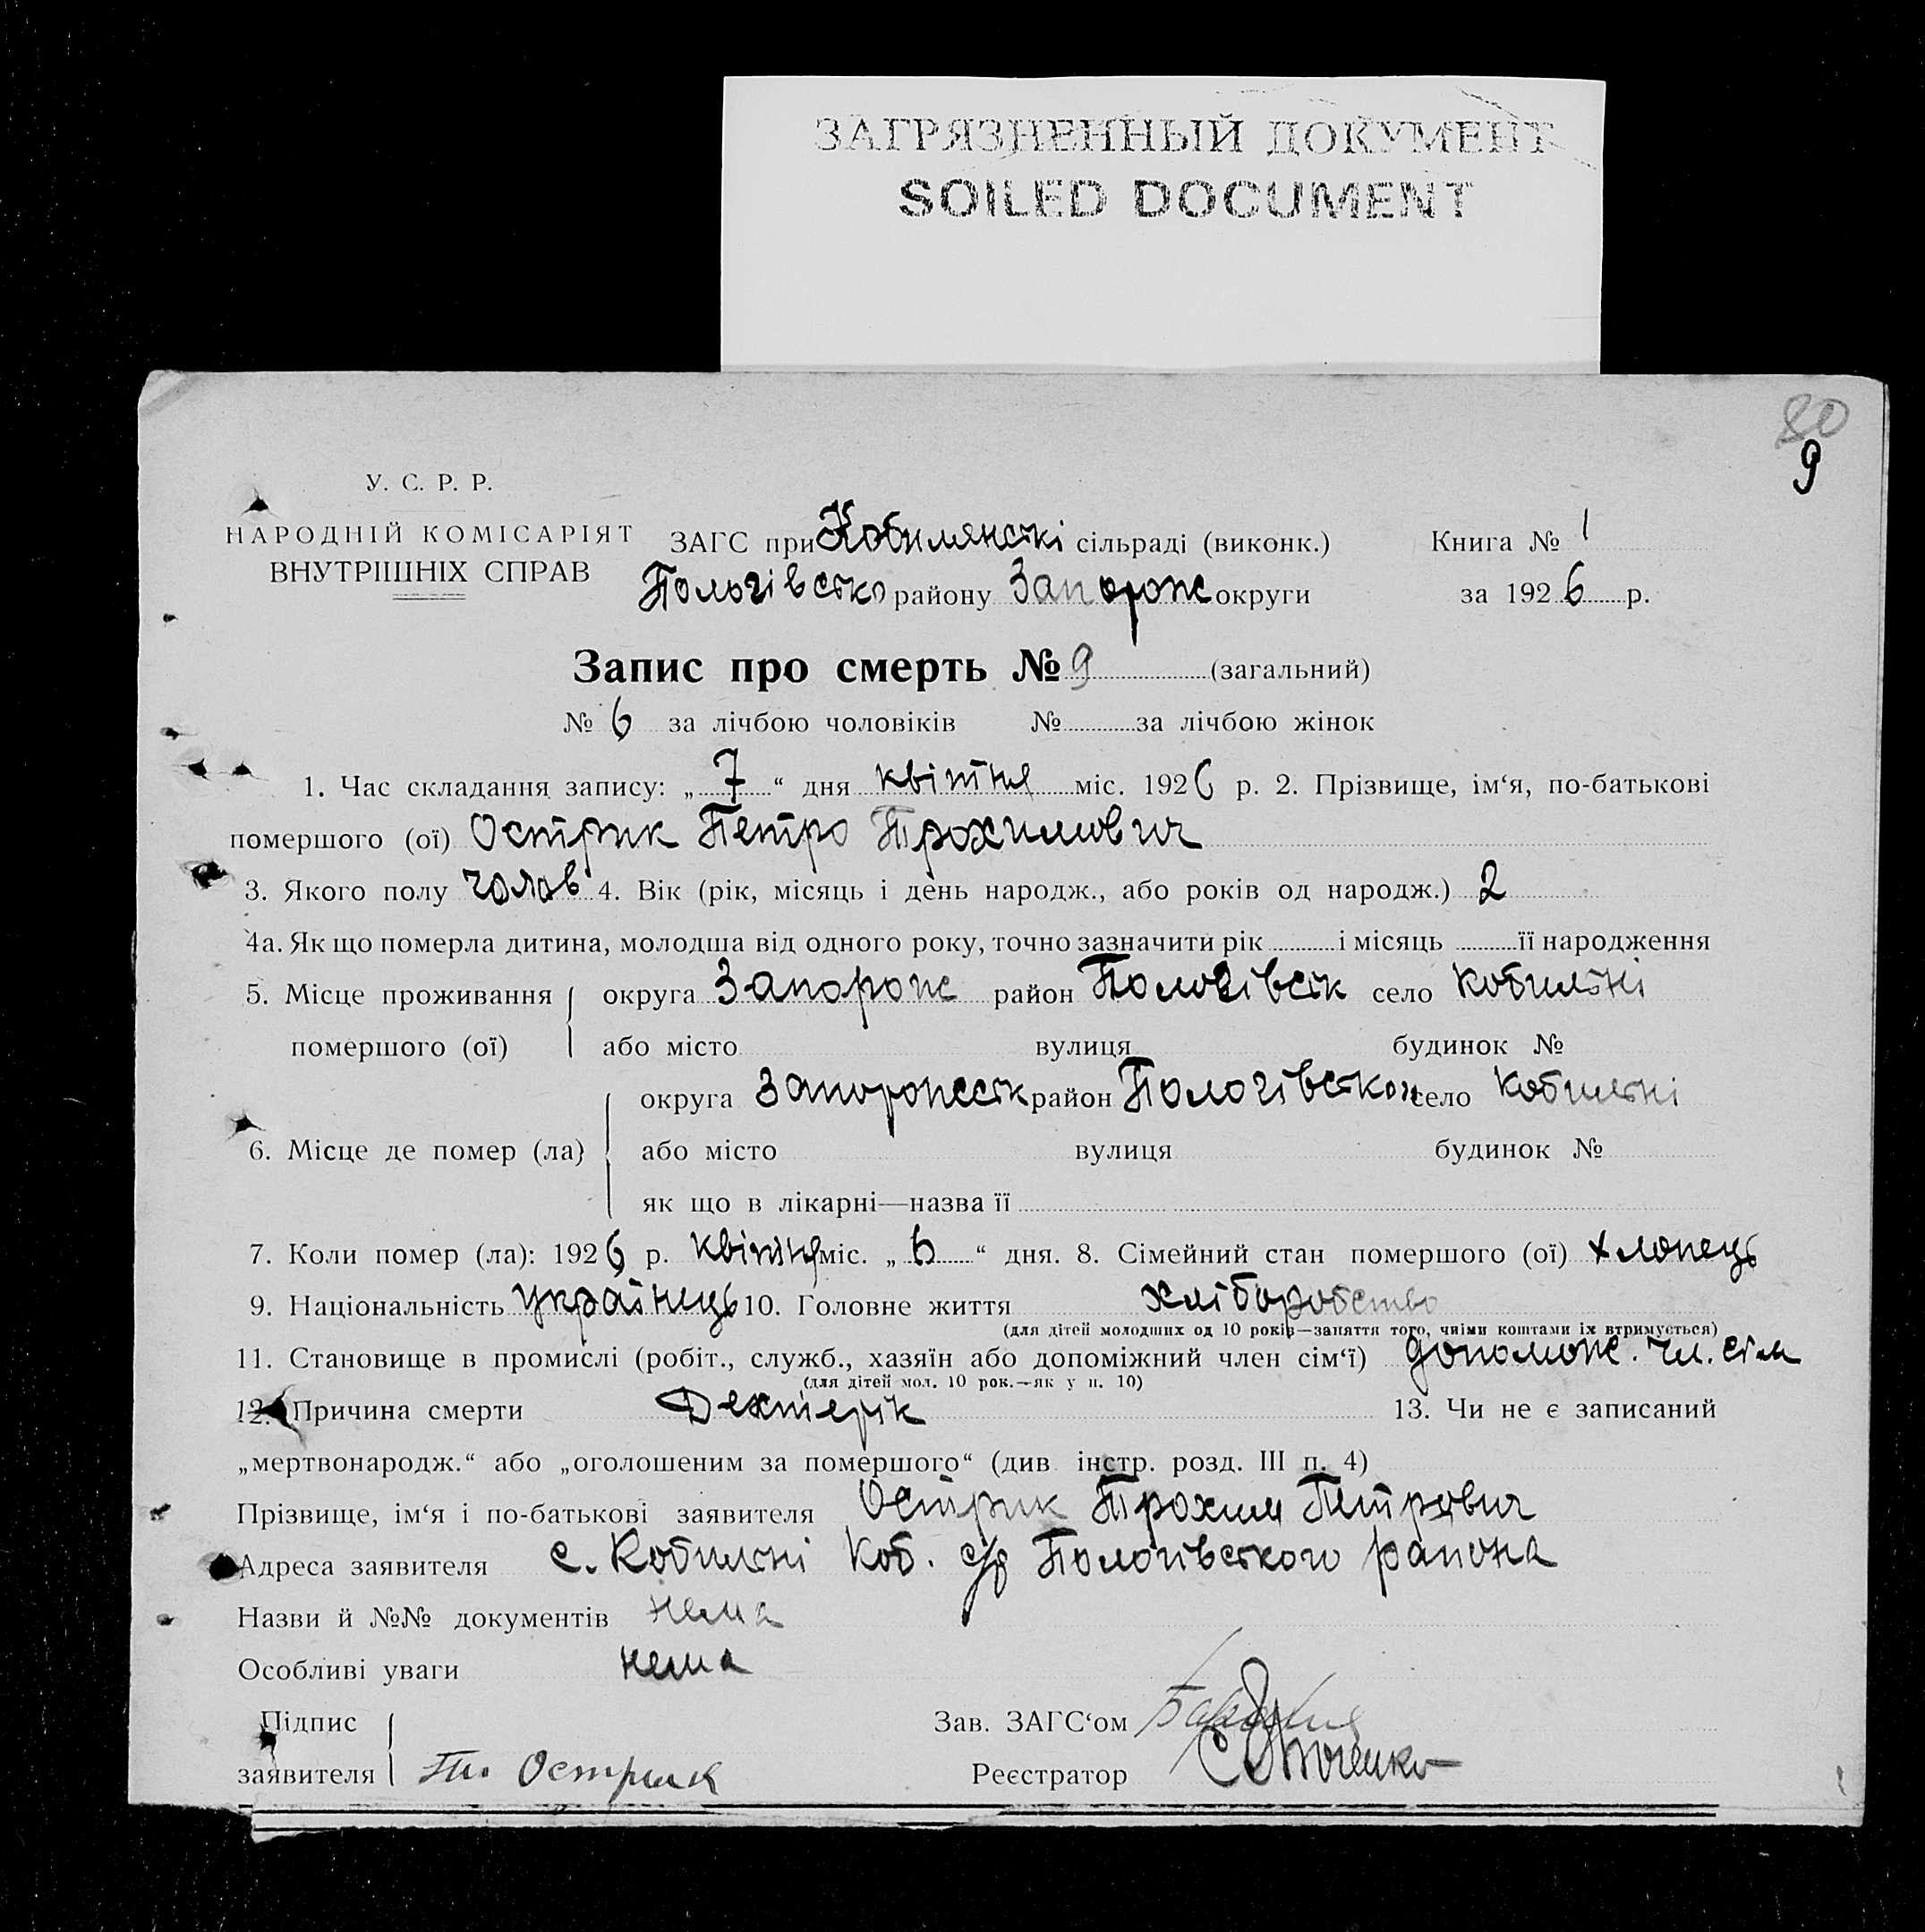 ЗАГРЯЗНЕННЫЙ ДОКУМЕНТ
SOILED DOCUMENT
80
9
У. С. Р. Р.
НАРОДНІЙ КОМІСАРІЯТ
ВНУТРІШНІХ СПРАВ
ЗАГС при Кобилянскі сільраді (виконк.) Книга № 1
Пологівско району Запорож округи за 1926 р.
Запис про смерть № 9 (загальний)
№ 6 за лічбою чоловіків № за лічбою жінок
1. Час складання запису: „7“ дня квітня міс. 1926 р. 2. Прізвище, ім‘я, по-батькові
помершого (ої) Острик Петро Трохимович
3. Якого полу чолов 4. Вік (рік, місяць і день народж., або років од народж.) 2
4а. Як що померла дитина, молодша від одного року, точно зазначити рік і місяць її народження
5. Місце проживання округа Запорож район Пологівск село Кобильні
помершого (ої) або місто вулиця будинок №
округа Запоружсск район Пологівском село Кобильні
6. Місце де помер (ла) або місто вулиця будинок №
як що в лікарні—назва її
7. Коли помер (ла): 1926 р. квітня міс. „6“ дня. 8. Сімейний стан помершого (ої) хлопець
9. Національність українець 10. Головне життя хліборобство
(для дітей молодших од 10 років—заняття того, чиїми коштами їх втримується)
11. Становище в промислі (робіт., служб., хазяїн або допоміжний член сім‘ї) допомож. чл. сім
(для дітей мол. 10 рок.—як у п. 10)
12. Причина смерти Дехтерік 13. Чи не є записаний
„мертвонародж.“ або „оголошеним за помершого“ (див. інстр. розд. III п. 4)
Прізвище, ім‘я і по-батькові заявителя Острик Трохим Петрович
Адреса заявителя с. Кобильні Коб. с/р Пологівского района
Назви й №№ документів нема
Особливі уваги нема
Підпис
Зав. ЗАГС‘ом
заявителя Острик Реєстратор